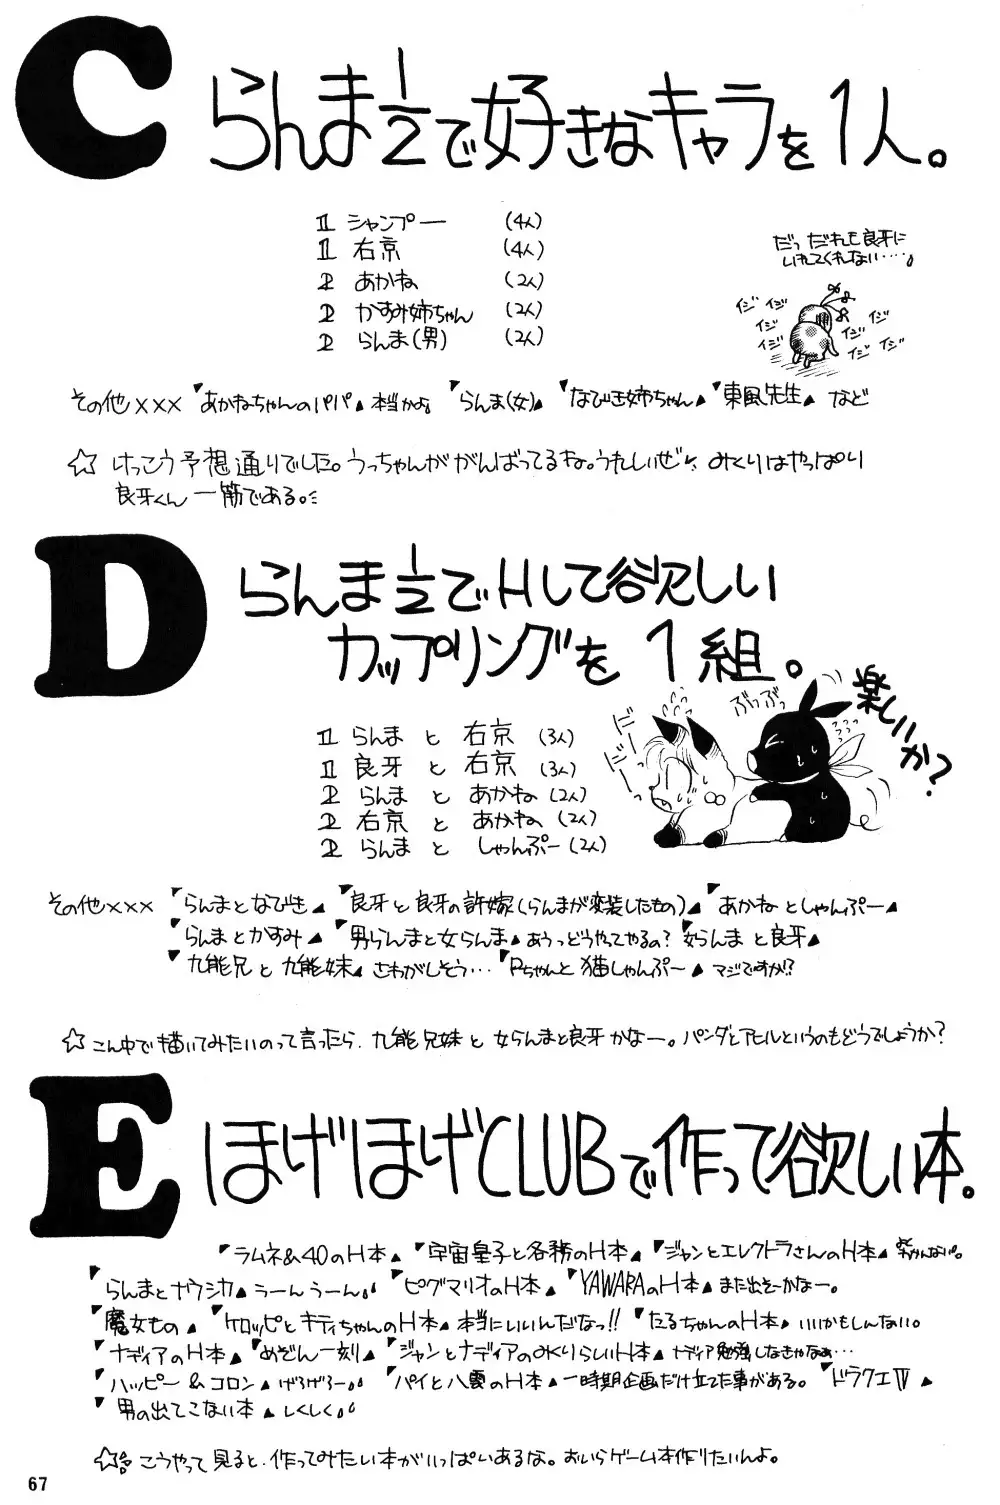 C らんま1/2で好きなキャラを1人。
1 シャンプー (4人)
1 右京 (4人)
2 あかね (2人)
2 かすみ姉ちゃん (2人)
2 らんま(男) (2人)
だっ だれも良牙に
いれてくれない・・・・。
イジ イジ イジ イジ イジ イジ イジ イジ
その他××× 「あかねちゃんのパパ」本当かよ。「らんま(女)」「なびき姉ちゃん」「東風先生」など
☆けっこう予想通りでした。うっちゃんががんばってるね。うれしいぜ! みくりはやっぱり
良牙くん一筋である。
D らんま1/2でHして欲しい
カップリングを1組。
1 らんま と 右京 (3人)
1 良牙 と 右京 (3人)
2 らんま と あかね (2人)
2 右京 と あかね (2人)
2 らんま と しゃんぷー (2人)
だーだーだー
ぶっぶっ
楽しいか?
その他××× 「らんまとなびき」「良牙と良牙の許嫁(らんまが変装したもの)」「あかねとしゃんぷー」
「らんまとかすみ」「男らんまと女らんま」あうっどうやってやるの?「女らんまと良牙」
「九能兄と九能妹」さわがしそう・・・「Pちゃんと猫しゃんぷー」マジですか!?
☆こん中で描いてみたいのって言ったら、九能兄妹と女らんまと良牙かなー。パンダとアヒルというのもどうでしょうか?
E ほげほげCLUBで作って欲しい本。
「ラムネ&40のH本」「宇宙皇子と各務のH本」「ジャンとエレクトラさんのH本」わかんない。
「らんまとナウシカ」うーんうーん。「ピグマリオのH本」「YAWARAのH本」また出そーかなー。
「魔女もの」「ケロッピとキティちゃんのH本」本当にいいんだなっ!!「たるちゃんのH本」いいかもしんない。
「ナディアのH本」「めぞん一刻」「ジャンとナディアのみくりらしいH本」ナディア勉強しなきゃなあ・・・
「ハッピー&コロン」げろげろー。「パイと八雲のH本」一時期企画だけ立てた事がある。「ドラクエⅣ」
「男の出てこない本」しくしく。
☆こうやって見ると、作ってみたい本がいっぱいあるな。おいらゲーム本作りたいんよ。
67